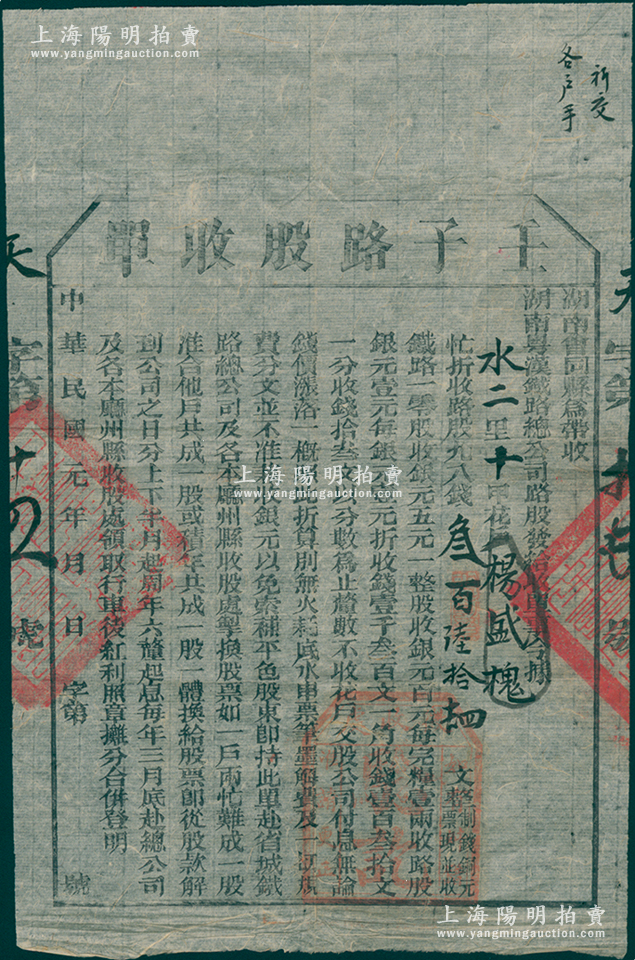 上海陽明拍賣
www.yangmingauction.com
祈交
各戶手
壬子路股收單
湖南會同縣爲帶收
湖南粵漢鐵路總公司路股發給收單事今據
水二里十甲花戶楊盛槐
忙折收路股九八錢叁百陸拾肆文整
制錢銅元
票現並收
鐵路一零股收銀元五元一整股收銀元百元每完糧壹兩收路股
銀元壹元每銀元壹元折收錢壹千叁百文一角收錢壹百叁拾文
一分收錢拾叁文以分數爲止釐數不收花戶交股公司付息無論
錢價漲落一概照折算別無火耗底水串票筆墨解費及一切規
費分文並不准扣銀元以免索補平色股東即持此單赴省城鐵
路總公司及各本廳州縣收股處掣換股票如一戶兩忙難成一股
准合他戶共成一股或積年共成一股一體換給股票即從股款解
到公司之日分上下半月起周年六釐起息每年三月底赴總公司
及各本廳州縣收股處領取行車後紅利照章攤分合併登明
中華民國元年 月 日 字第 號
天字第十四號
上海陽明拍賣
www.yangmingauction.com
上海陽明拍賣
www.yangmingauction.com